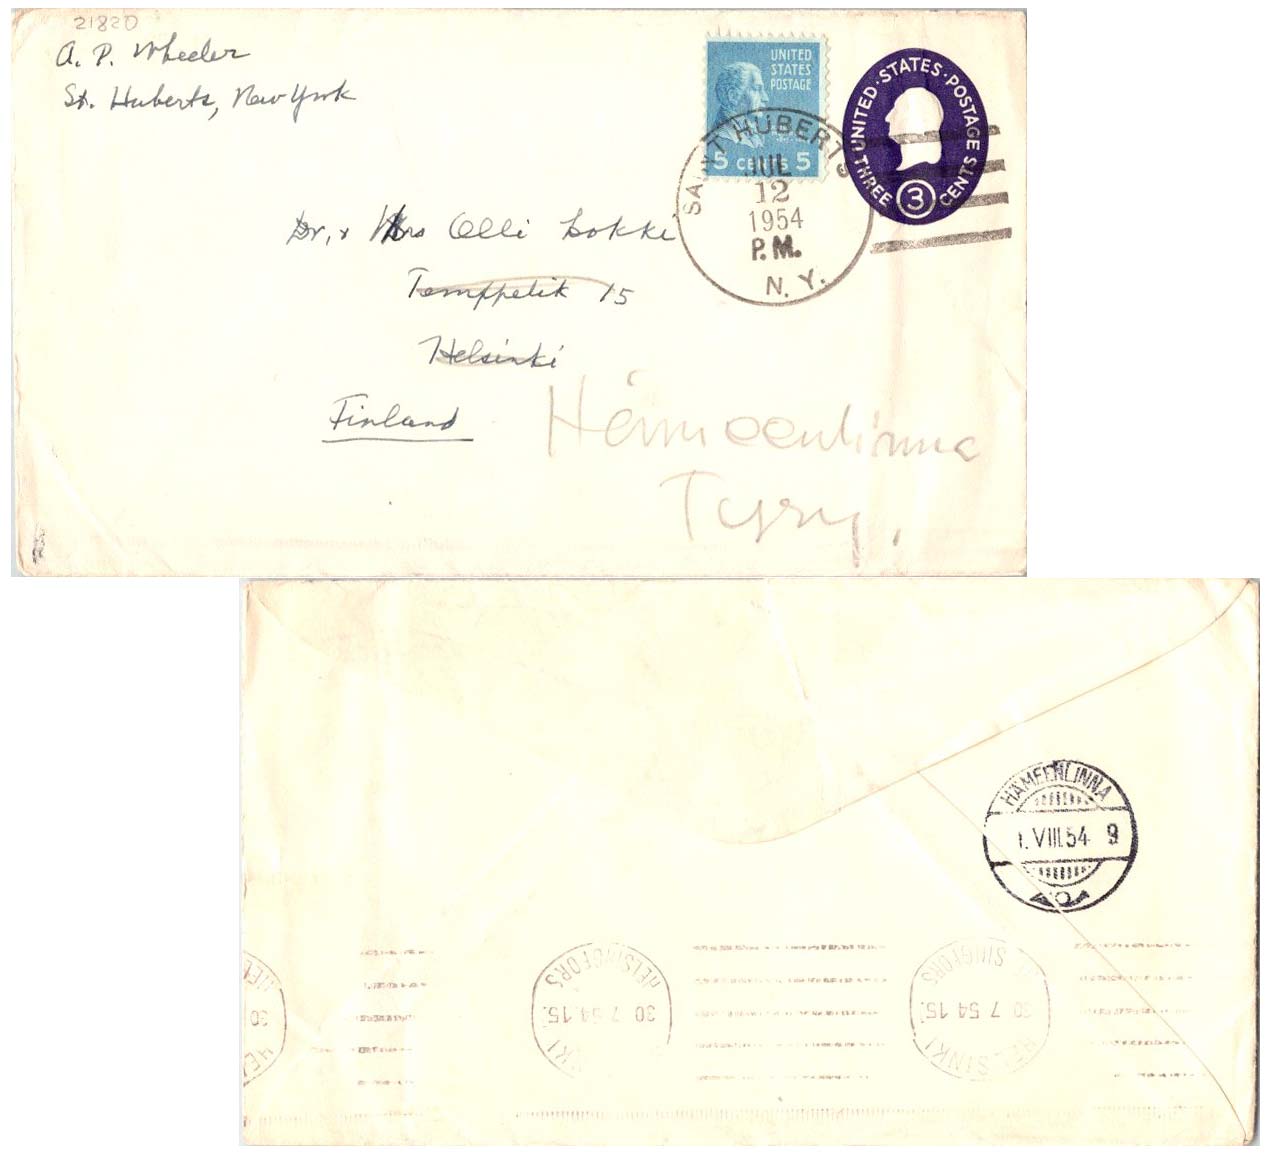 21820
A. P. Wheeler
St. Huberts, New York
UNITED
STATES
POSTAGE
5 CENTS 5
UNITED · STATES · POSTAGE
THREE 3 CENTS
SAINT HUBERTS
JUL
12
1954
P.M.
N. Y.
Dr. & Mrs Olli Lokki
Temppelik 15
Helsinki
Finland
Hämeenlinna
Tyry,
HÄMEENLINNA
1.VIII.54 9
HEL
30
HEL
HELSINGFORS
30 7 54.15.
NKI
SINGFORS
30 7 54 15.
HELSINKI